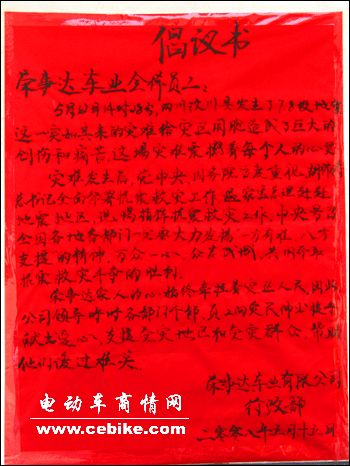 倡议书
荣事达车业全体员工：
5月12日14时28分，四川汶川县发生了7.8级地震
这一突如其来的灾难给灾区同胞造成了巨大的
创伤和痛苦，这场灾难震撼着每个人的心灵
灾难发生后，党中央、国务院高度重视，胡锦涛
总书记全面部署抗震救灾工作 温家宝总理赶赴
地震地区，现场指挥抗震救灾工作。中央号召
全国各地各部门一定要大力发扬一方有难，八方
支援的精神，万众一心，众志成城，共同夺取
抗震救灾斗争的胜利。
荣事达家人的心始终牵挂着灾区人民，因此
公司领导呼吁各部门干部、员工向灾区伸出援手
献出爱心，支援受灾地区和受灾群众，帮助
他们渡过难关
荣事达车业有限公司
行政部
二零零八年五月十五日
电动车商情网
www.cebike.com